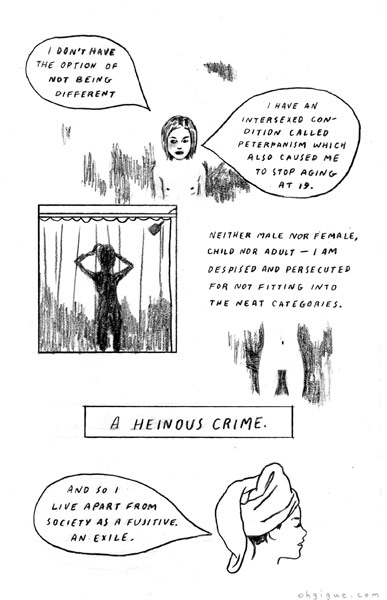 I DON'T HAVE
THE OPTION OF
NOT BEING
DIFFERENT
I HAVE AN
INTERSEXED CON-
DITION CALLED
PETERPANISM WHICH
ALSO CAUSED ME
TO STOP AGING
AT 19.
NEITHER MALE NOR FEMALE,
CHILD NOR ADULT — I AM
DESPISED AND PERSECUTED
FOR NOT FITTING INTO
THE NEAT CATEGORIES.
A HEINOUS CRIME.
AND SO I
LIVE APART FROM
SOCIETY AS A FUGITIVE.
AN EXILE.
ohgigue.com